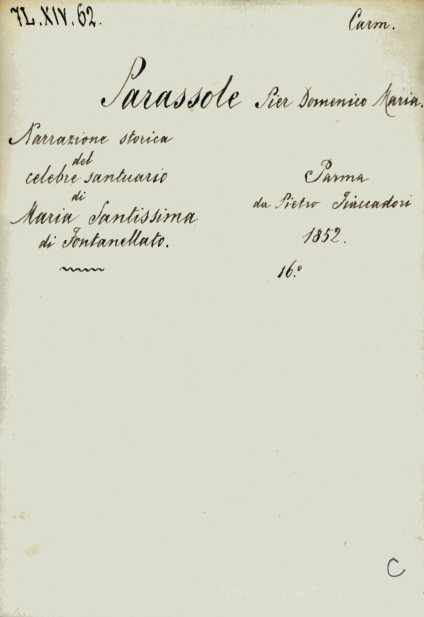 7L.XIV.62.
Carm.
Parassole Pier Domenico Maria.
Narrazione storica
del
celebre santuario
di
Maria Santissima
di Fontanellato.
Parma
da Pietro Fiaccadori
1852.
16.°
C